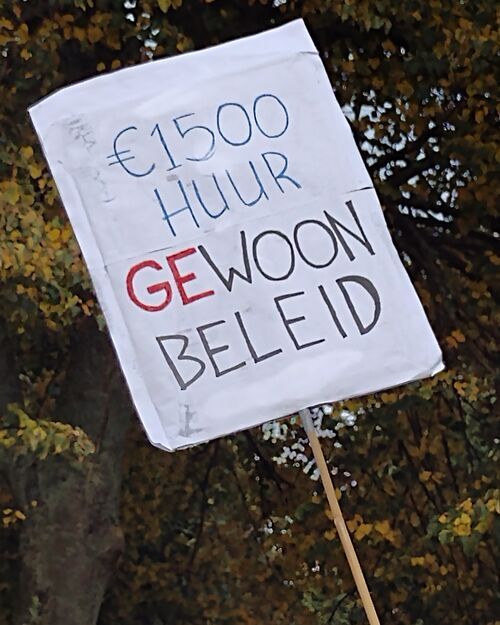 €1500
HUUR
GEWOON
BELEID